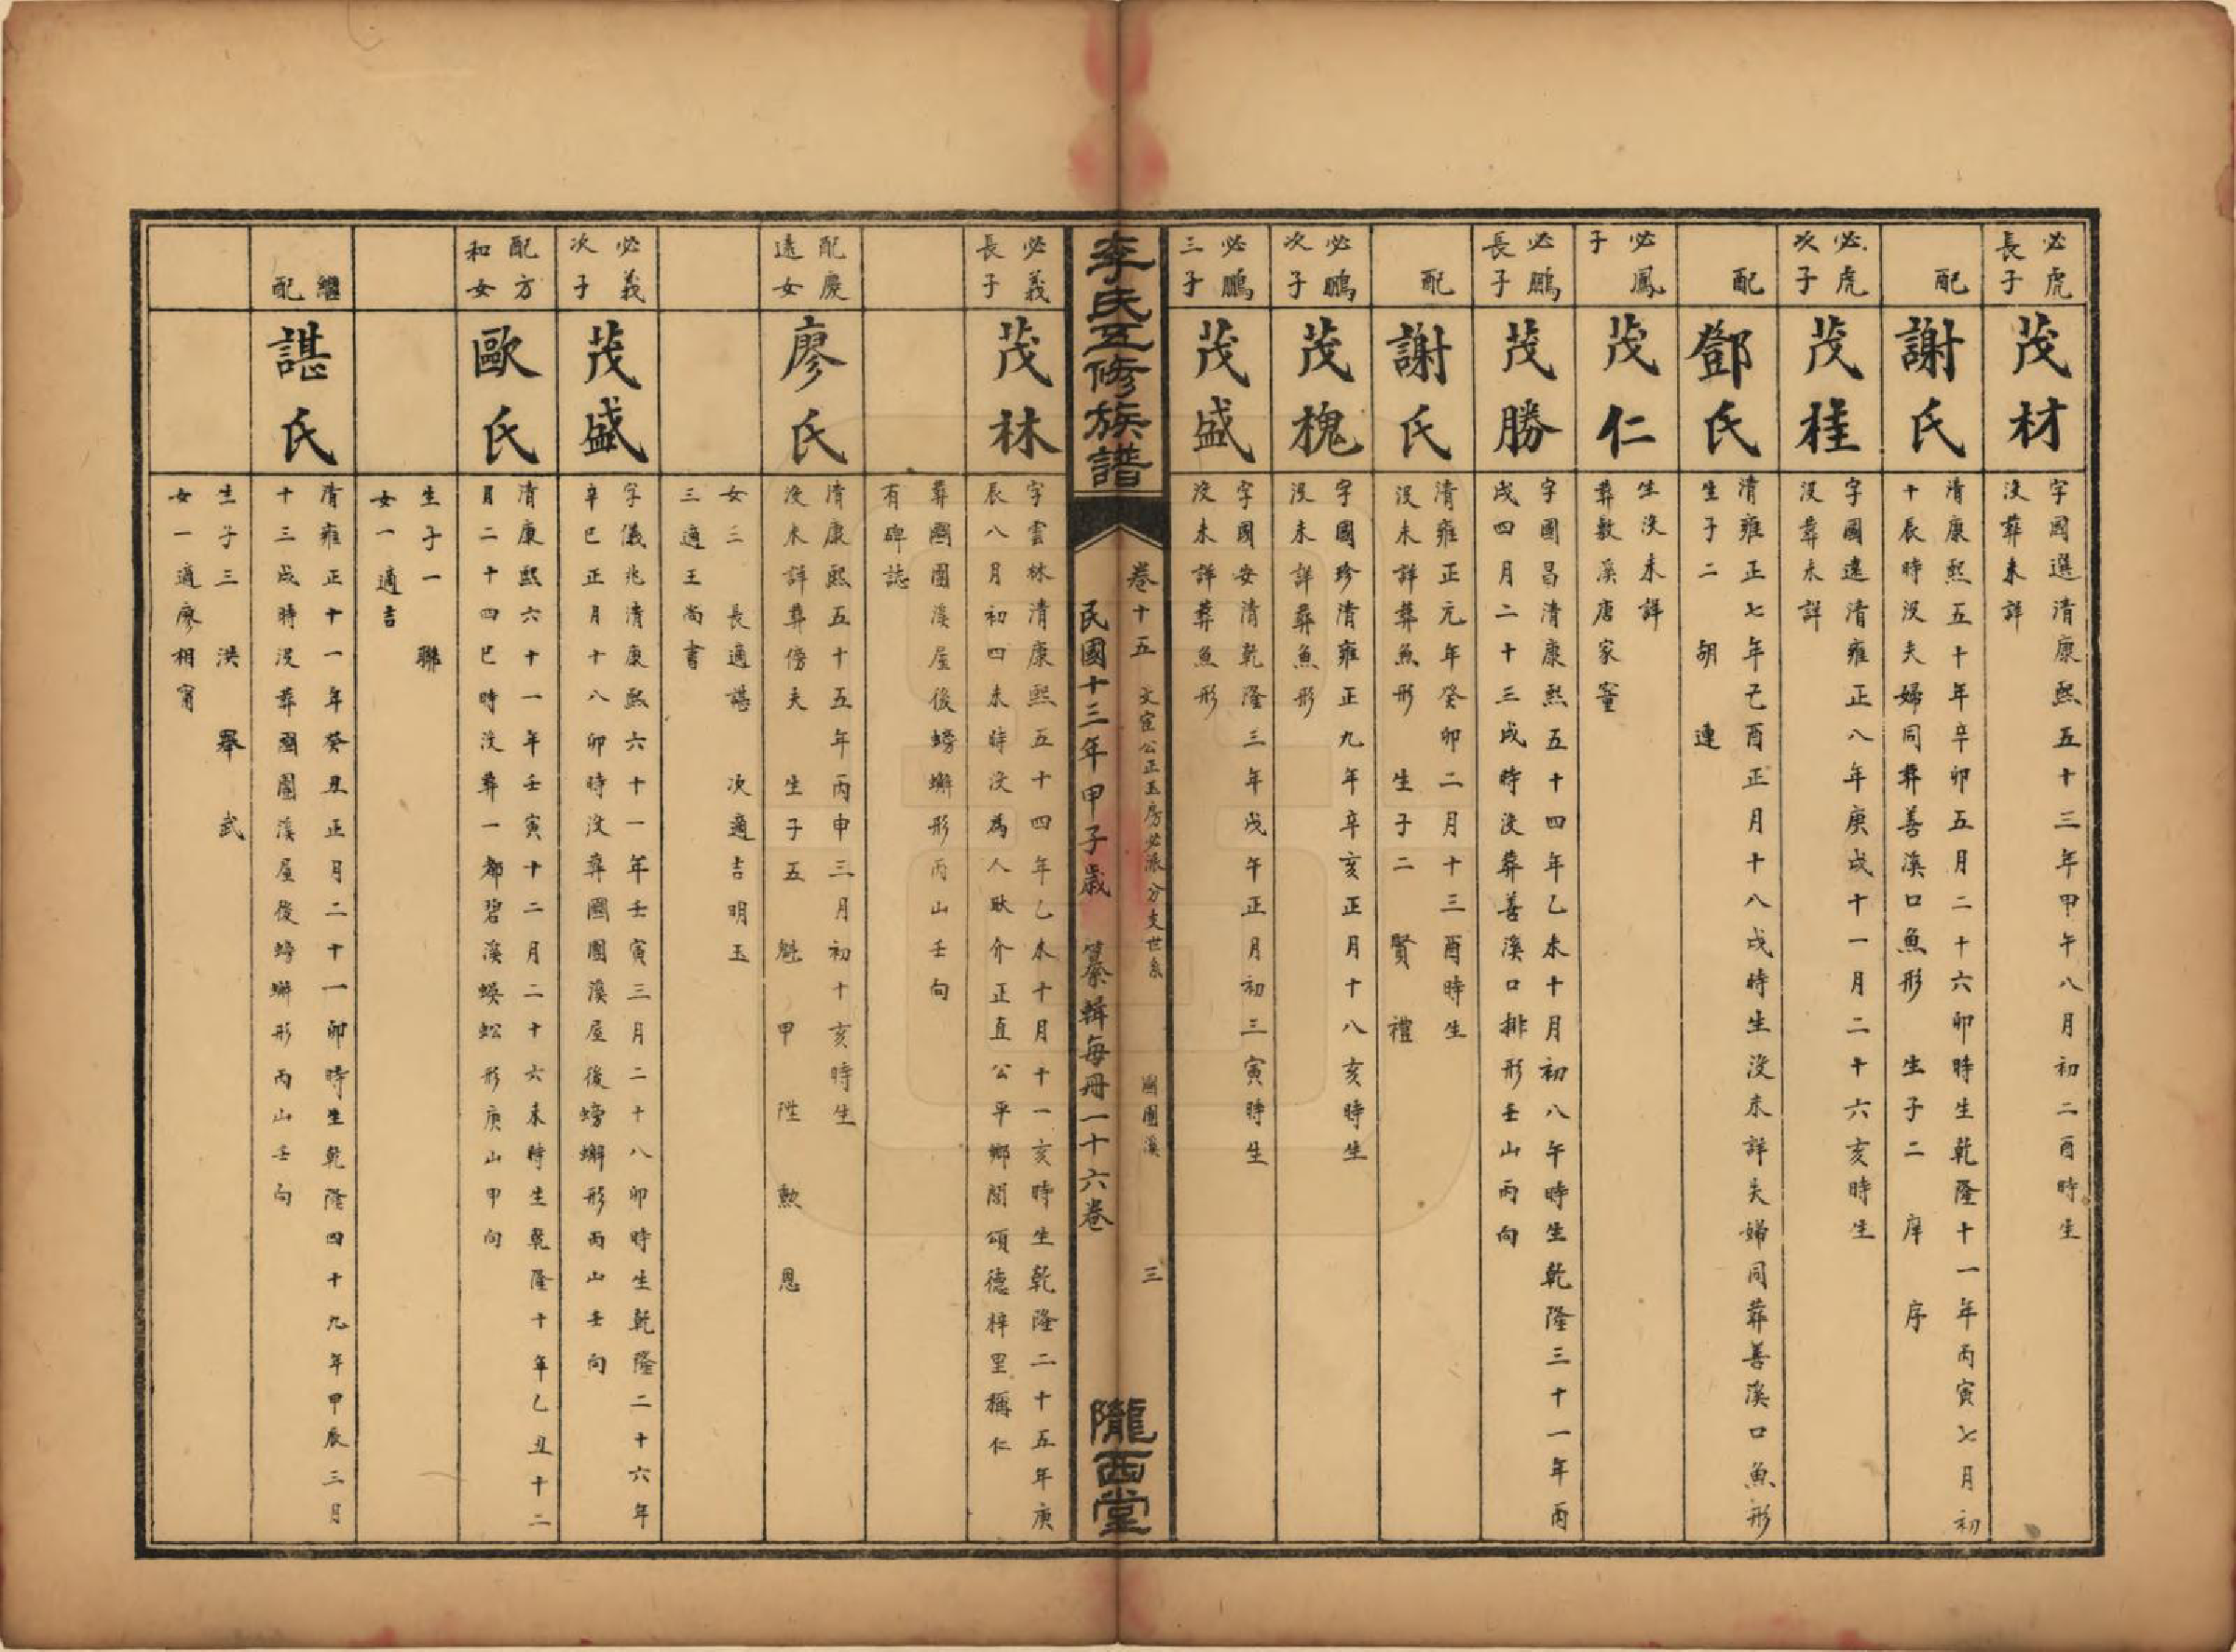 必虎
長子
茂材
字國選清康熙五十三年甲午八月初二酉時生
沒葬未詳
配
謝氏
清康熙五十年辛卯五月二十六卯時生乾隆十一年丙寅七月初
十辰時沒夫婦同葬善溪口魚形 生子二 庠 序
必虎
次子
茂桂
字國遠清雍正八年庚戌十一月二十六亥時生
沒葬未詳
配
鄧氏
清雍正七年己酉正月十八戌時生沒未詳夫婦同葬善溪口魚形
生子二 胡 連
必鳳
子
茂仁
生沒未詳
葬數溪唐家
必鵬
長子
茂勝
字國昌清康熙五十四年乙未十月初八午時生乾隆三十一年丙
戌四月二十三戌時沒葬善溪口排形壬山丙向
配
謝氏
清雍正元年癸卯二月十三酉時生
沒未詳葬魚形 生子二 賢 禮
必鵬
次子
茂槐
字國珍清雍正九年辛亥正月十八亥時生
沒未詳葬魚形
必鵬
三子
茂盛
字國安清乾隆三年戊午正月初三寅時生
沒未詳葬魚形
李氏五修族譜
卷十五 文宦公正玉房必派分支世系 團團溪 三
民國十三年甲子歲 纂輯每冊一十六卷
隴西堂
必義
長子
茂林
字雲林清康熙五十四年乙未十月十一亥時生乾隆二十五年庚
辰八月初四未時沒為人耿介正直公平鄉閭頌德梓里稱仁
葬團團溪屋後螃蠏形丙山壬向
有碑誌
配慶
遠女
廖氏
清康熙五十五年丙申三月初十亥時生
沒未詳葬傍夫 生子五 魁 甲 陞 勲 恩
女三 長適諶 次適吉明玉
三適王尚書
必義
次子
茂盛
字儀兆清康熙六十一年壬寅三月二十八卯時生乾隆二十六年
辛巳正月十八卯時沒葬團團溪屋後螃蠏形丙山壬向
配方
和女
歐氏
清康熙六十一年壬寅十二月二十六未時生乾隆十年乙丑十二
月二十四巳時沒葬一都碧溪蜈蚣形庚山甲向
生子一 聯
女一適吉
繼
配
諶氏
清雍正十一年癸丑正月二十一卯時生乾隆四十九年甲辰三月
十三戌時沒葬團團溪屋後螃蠏形丙山壬向
生子三 洪 舉 武
女一適廖相甯